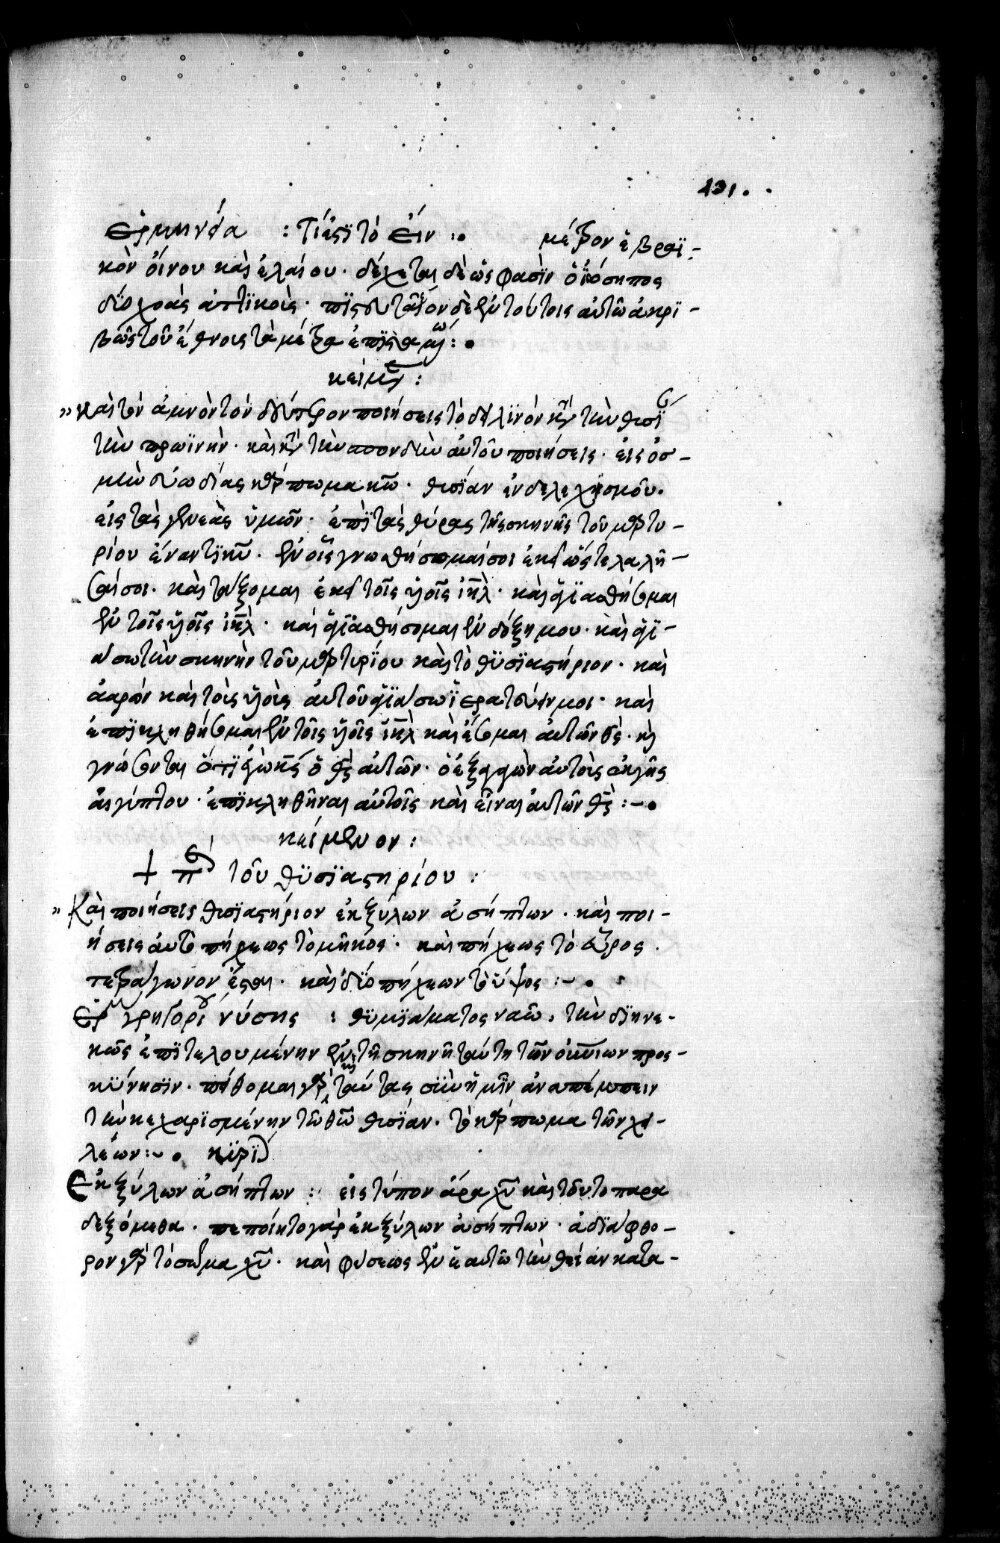 131.
ἑρμηνεία : Τί ἐστὶ τὸ εἴν :. μέτρον ἑβραϊ-
κὸν οἴνου καὶ ἐλαίου · δέχεται δὲ ὥς φασὶν ὁ ἰώσηπος
δύο χοὰς ἀττικοὺς · δὲ ἐν τούτοις αὐτῶ ἀκρι-
βῶς τοῦ ἔθνους τὰ μέτρα ἐπισταμένω :.
κείμεν :
" καὶ τὸν ἀμνὸν τὸν δεύτερον ποιήσεις τὸ δειλϊνὸν κατὰ τὴν θυσί
τὴν πρωϊνὴν · καὶ κατὰ τὴν σπονδὴν αὐτοῦ ποιήσεις · εἰς ὀσ-
μὴν εὐωδίας κάρπωμα κω · θυσίαν ἐνδελεχισμοῦ ·
εἰς τὰς γενεὰς ὑμῶν · ἐπὶ τὰς θύρας τῆς σκηνῆς τοῦ μαρτυ-
ρίου ἔναντι κυ · ἐν οἷς γνωσθήσωμαί σοι ἐκεῖ ὥστε λαλῆ-
σαί σοι · καὶ τάξομαι ἐκεῖ τοῖς υἱοῖς ιηλ · καὶ ἁγιασθήσομαι
ἐν τοῖς υἱοῖς ιηλ · καὶ ἁγιασθήσομαι ἐν δόξη μου · καὶ ἁγι-
άσω τὴν σκηνὴν τοῦ μαρτυρίου καὶ τὸ θυσιαστήριον · καὶ
ἀαρὼν καὶ τοὺς υἱοὺς αὐτοῦ ἁγιάσω ἱερατεύειν μοι · καὶ
ἐπικληθήσομαι ἐν τοῖς υἱοῖς ιηλ καὶ ἔσομαι αὐτῶν θς · καὶ
γνώσονται ὅτι ἐγὼ κς ὁ θς αὐτῶν · ὁ ἐξαγαγὼν αὐτοὺς ἐκ γῆς
αἰγύπτου · ἐπικληθῆναι αὐτοῖς καὶ εἶναι αὐτῶν θς :- .
κείμενον :
+ π τοῦ θυσιαστηρίου :
" Καὶ ποιήσεις θυσιαστήριον ἐκ ξύλων ἀσήπτων · καὶ ποι-
ήσεις αὐτὸ πήχεως τὸ μῆκος · καὶ πήχεως τὸ εὖρος ·
τετράγωνον ἔσται · καὶ δύο πήχεων τὸ ὕψος :- .
Ερ γρηγορίου νύσης : θυμιάματος ναῶ, τὴν διηνε-
κῶς ἐπιτελουμένην ἐν τῆ σκηνῆ ταύτη τῶν προσ-
κύνησιν · πείθομαι γὰρ ταύτας σὺν ἡμῖν ἀναπέμπειν
τὴν κεχαρισμένην τῶ θω θυσίαν · τὸ κάρπωμα τῶν χει-
λέων :- . κϋρϊ
Εκ ξύλων ἀσήπτων : εἰς τύπον ἄρα χυ καὶ τοῦτο παρα
δεξόμεθα · πεποίητο γὰρ ἐκ ξύλων ἀσήπτων · ἀδιάφθο-
ρον γὰρ τὸ σῶμα χυ · καὶ φύσεως ἐν ἑαυτῶ τὴν θείαν κατα-